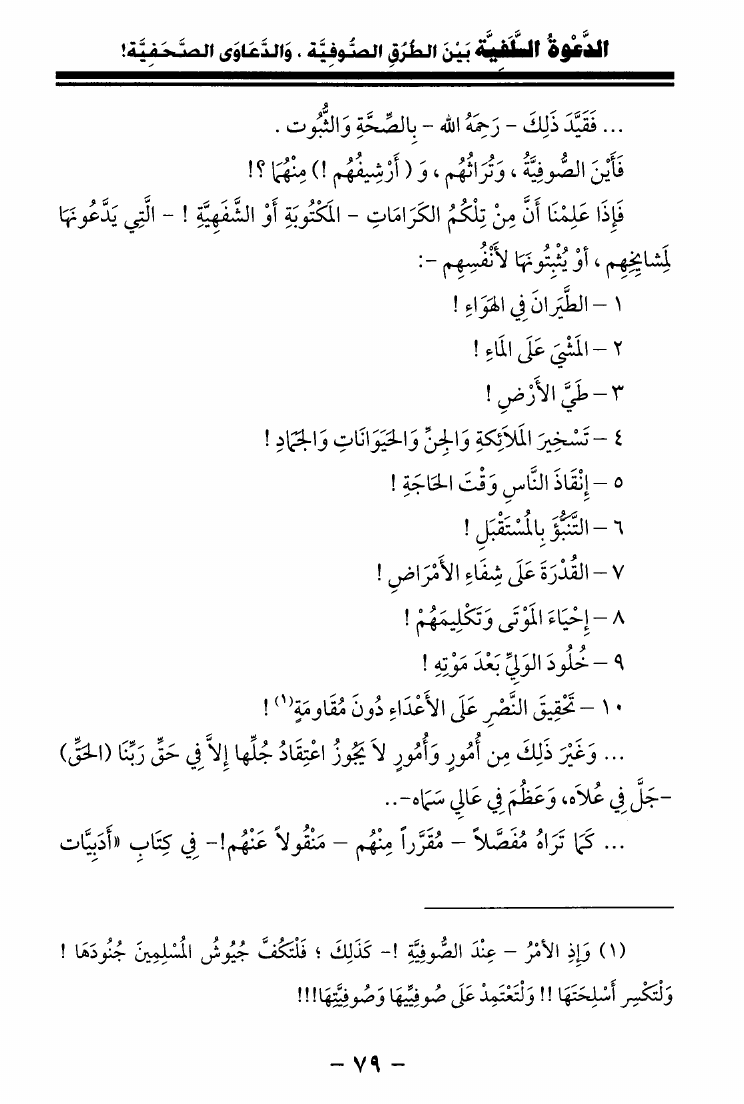 الدَّعْوةُ السَّلَفِيَّة بَيْنَ الطُرُقِ الصُّوفِيَّة ، وَالدَّعَاوَى الصَّحَفِيَّة!
... فَقَيَّدَ ذَلِكَ – رَحِمَهُ الله – بِالصِّحَّةِ وَالثُّبُوت .
فَأَيْنَ الصُّوفِيَّةُ ، وَتُرَاثُهُم ، وَ ( أَرْشِيفُهُم !) مِنْهُمَا ؟!
فَإِذَا عَلِمْنَا أَنَّ مِنْ تِلْكُمُ الكَرَامَاتِ – المَكْتُوبَةِ أَوْ الشَّفَهِيَّةِ ! – الَّتِي يَدَّعُونَهَا
لمَِشايِخِهِم ، أَوْ يُثْبِتُونَهَا لأَنْفُسِهِم –:
١ – الطَّيَرانَ فِي الهَوَاءِ !
٢ – المَشْيَ عَلَى المَاءِ !
٣ – طَيَّ الأَرْضِ !
٤ – تَسْخِيرَ المَلاَئِكةِ وَالجِنِّ وَالحَيَوَانَاتِ وَالجَمَادِ !
٥ – إِنْقَاذَ النَّاسِ وَقْتَ الحَاجَةِ !
٦ – التَّنَبُّؤَ بِالمُسْتَقْبَلِ !
٧ – القُدْرَةَ عَلَى شِفَاءِ الأَمْرَاضِ !
٨ – إِحْيَاءَ المَوْتَى وَتَكْلِيمَهُمْ !
٩ – خُلُودَ الوَلِيِّ بَعْدَ مَوْتِهِ !
١٠ – تَحْقِيقَ النَّصْرِ عَلَى الأَعْدَاءِ دُونَ مُقَاومَةٍ(١) !
... وَغَيْرَ ذَلِكَ مِن أُمُورٍ وَأُمُورٍ لاَ يَجُوزُ اعْتِقَادُ جُلِّها إِلاَّ فِي حَقِّ رَبِّنَا (الحَقِّ)
–جَلَّ فِي عُلاَه، وَعَظُمَ فِي عَالِي سَمَاه–..
... كَمَا تَرَاهُ مُفَصَّلاً – مُقَرَّراً مِنْهُم – مَنْقُولاً عَنْهُم!– فِي كِتَابِ «أَدَبِيَّات
(١) وَإِذِ الأَمْرُ – عِنْدَ الصُّوفِيَّةِ !– كَذَلِكَ ؛ فَلْتَكُفَّ جُيُوشُ المُسْلِمِينَ جُنُودَهَا !
وَلْتَكْسِرِ أَسْلِحَتَهَا !! وَلْتَعْتَمِدْ عَلَى صُوفِيِّيهَا وَصُوفِيَّتِهَا!!!
– ٧٩ –